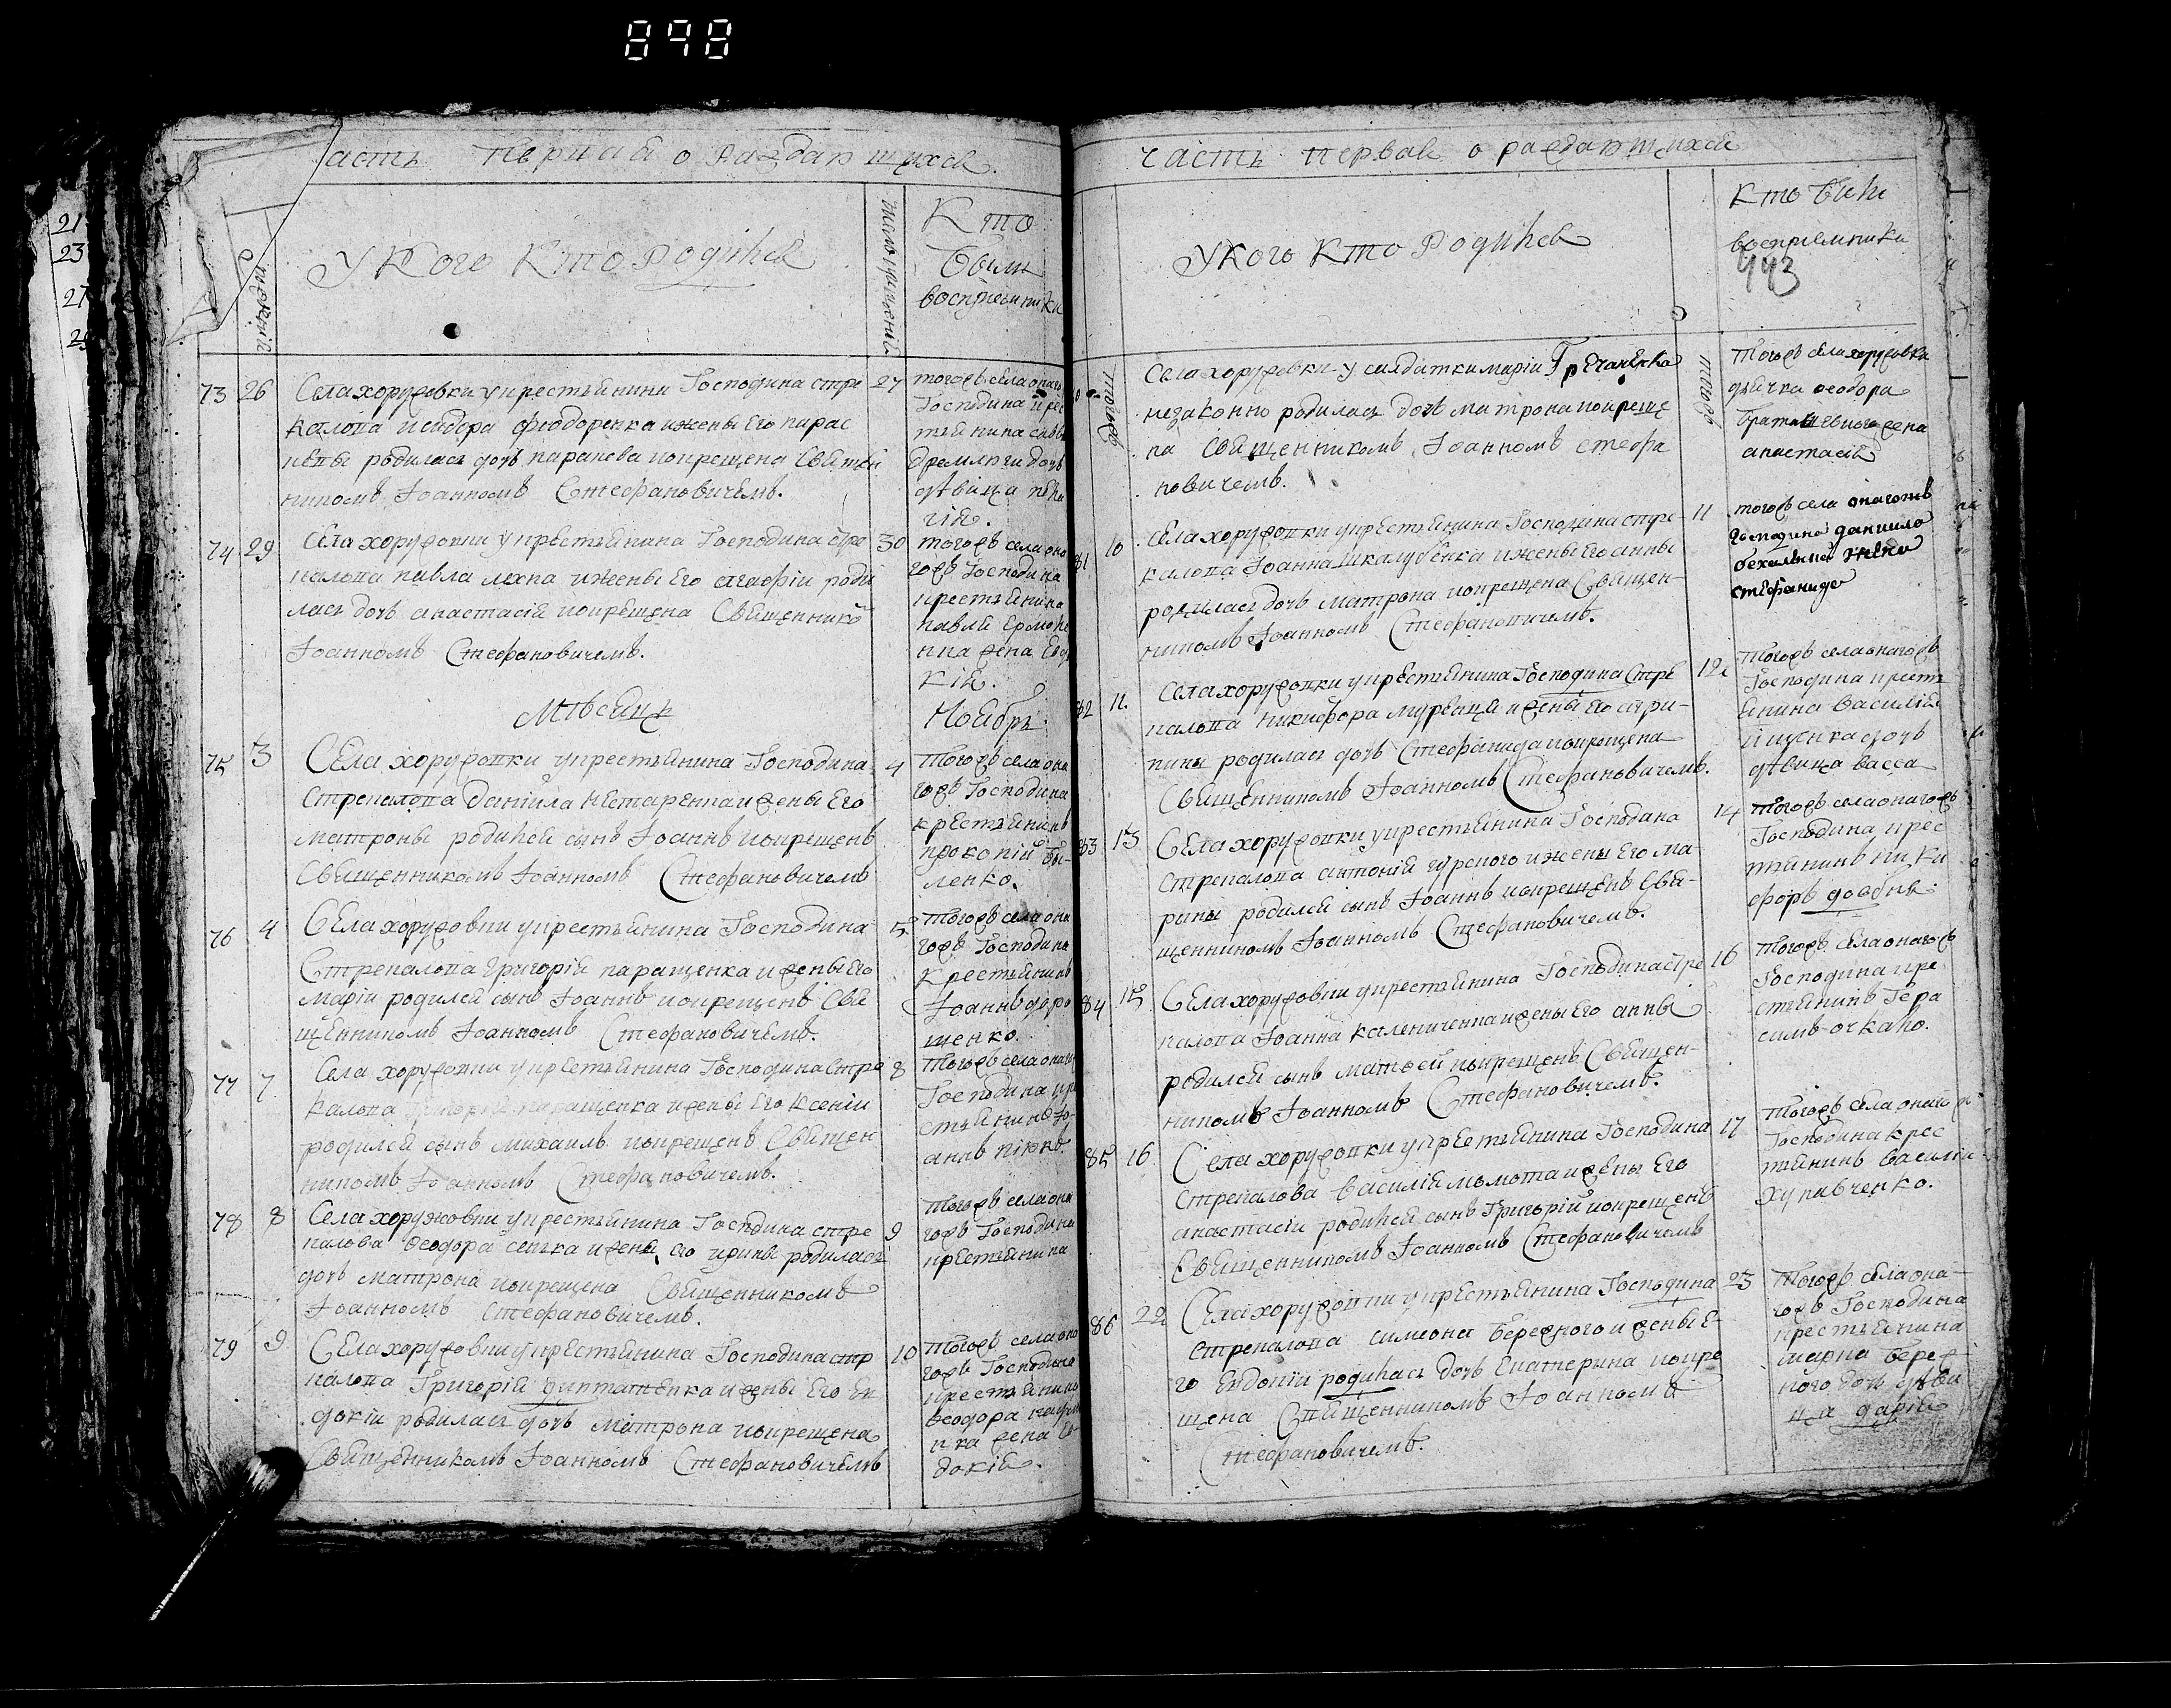 898
21
23
27
асть первая о раждающихся.
рожденія
У Кого Кто Родился
число крещеній
Кто
Были
восприемники
73 26 Села хоружовки у крестьянина Господина стре 27
калова исидора феодоренка и жены Его парас
кевы родилась дочь параскева и окрещена Священ
никомъ Іоанномъ Стефановичемъ.
тогожъ села онаго
Господина крес
тьянина
дочь
девица пела
гія.
74 29 Села хоружовки у крестьянина Господина стре 30
калова павла ляха и жены Его агафіи роди
лась дочь анастасія и окрещена Священнико
Іоанномъ Стефановичемъ.
тогожъ села она
гожъ Господина
крестьянина
павла Ермоле
нка жена Евдо
кія.
Мѣсяцъ Ноябрь
75 3 Села хоружовки у крестьянина Господина 4
Стрекалова Даніила нестаренка и жены Его
матроны родился сынъ Іоаннъ и окрещенъ
Священникомъ Іоанномъ Стефановичемъ
Тогожъ села она
гожъ Господина
крестьянинъ
прокопій Бы-
ленко.
76 4 Села хоружовки у крестьянина Господина 5
Стрекалова Григорія паращенка и жены Его
маріи родился сынъ Іоаннъ и окрещенъ Свя
щенникомъ Іоанномъ Стефановичемъ.
Тогожъ села она
гожъ Господина
Крестьянинъ
Іоаннъ доро
шенко.
77 7 Села хоружовки у крестьянина Господина Стре 8
калова Григорія паращенка и жены Его Ксеніи
родился сынъ михаилъ и окрещенъ Священ
никомъ Іоанномъ Стефановичемъ.
Тогожъ села она
Господина кре
стьянинъ Іо
аннъ
78 8 Села хоружовки у крестьянина Господина стре 9
калова Феодора сенка и жены его ирины родилась
дочь матрона и окрещена Священникомъ
Іоанномъ Стефановичемъ.
Тогожъ села она
гожъ Господина
крестьянина
79 9 Села хоружовки у крестьянина Господина стр 10
калова Григорія и жены Его Ев
докіи родилась дочь Матрона и окрещена
Священникомъ Іоанномъ Стефановичемъ
Тогожъ села она
гожъ Господина
крестьянина
Феодора
нка жена Ев
докія.
часть первая о раждающихся
У Кого Кто Родился
Кто были
восприемники
443
тогожъ Села хоружовки у салдатки маріи Гречаненка тогожъ
незаконно родилась дочь матрона и окреще
на Священникомъ Іоанномъ стефа
новичемъ.
Тогожъ села хоружовки
дьячка феодора
жена
анастасія
81 10 Села хоружовки у крестьянина Господина стре- 11
калова Іоанна Шкалубенка и жены Его анны
родилась дочь матрона и окрещена Священ-
никомъ Іоанномъ Стефановичемъ.
тогожъ села онагожъ
господина даниила
жена
стефанида
82 11. Села хоружовки у крестьянина Господина Стре 12
калова никифора и жены Его ири-
ны родилась дочь Стефанида и окрещена
Священникомъ Іоанномъ Стефановичемъ.
Тогожъ села онагожъ
Господина крестъ
янина василія
дочь
девица васса
83 13 Села хоружовки у крестьянина Господина 14
Стрекалова антонія гурского и жены Его ма
рины родился сынъ Іоаннъ и окрещенъ Свя-
щенникомъ Іоанномъ Стефановичемъ.
Тогожъ села онагожъ
Господина крес
тянинъ ники
форъ довбня.
84 15 Села хоружовки у крестьянина Господина Стре 16
калова Іоанна калениченка и жены Его анны
родился сынъ матѳей и окрещенъ Священ-
никомъ Іоанномъ Стефановичемъ.
Тогожъ села онагожъ
Господина кре
стьянинъ Гера
симъ очкало.
85 16 Села хоружовки у крестьянина Господина 17
Стрекалова василія момота и жены Его
анастасіи родился сынъ Григорій и окрещенъ
Священникомъ Іоанномъ Стефановичемъ
Тогожъ села онагожъ
Господина крес
тьянинъ василій
хупавченко.
86 22 Села хоружовки у крестьянина Господина 23
Стрекалова симеона Бережного и жены Е-
го Евдокіи родилась дочь Екатерина и окре
щена Священникомъ Іоанномъ
Стефановичемъ.
Тогожъ села она-
гожъ Господина
крестьянина
марка береж
ного дочь деви
ца дарія